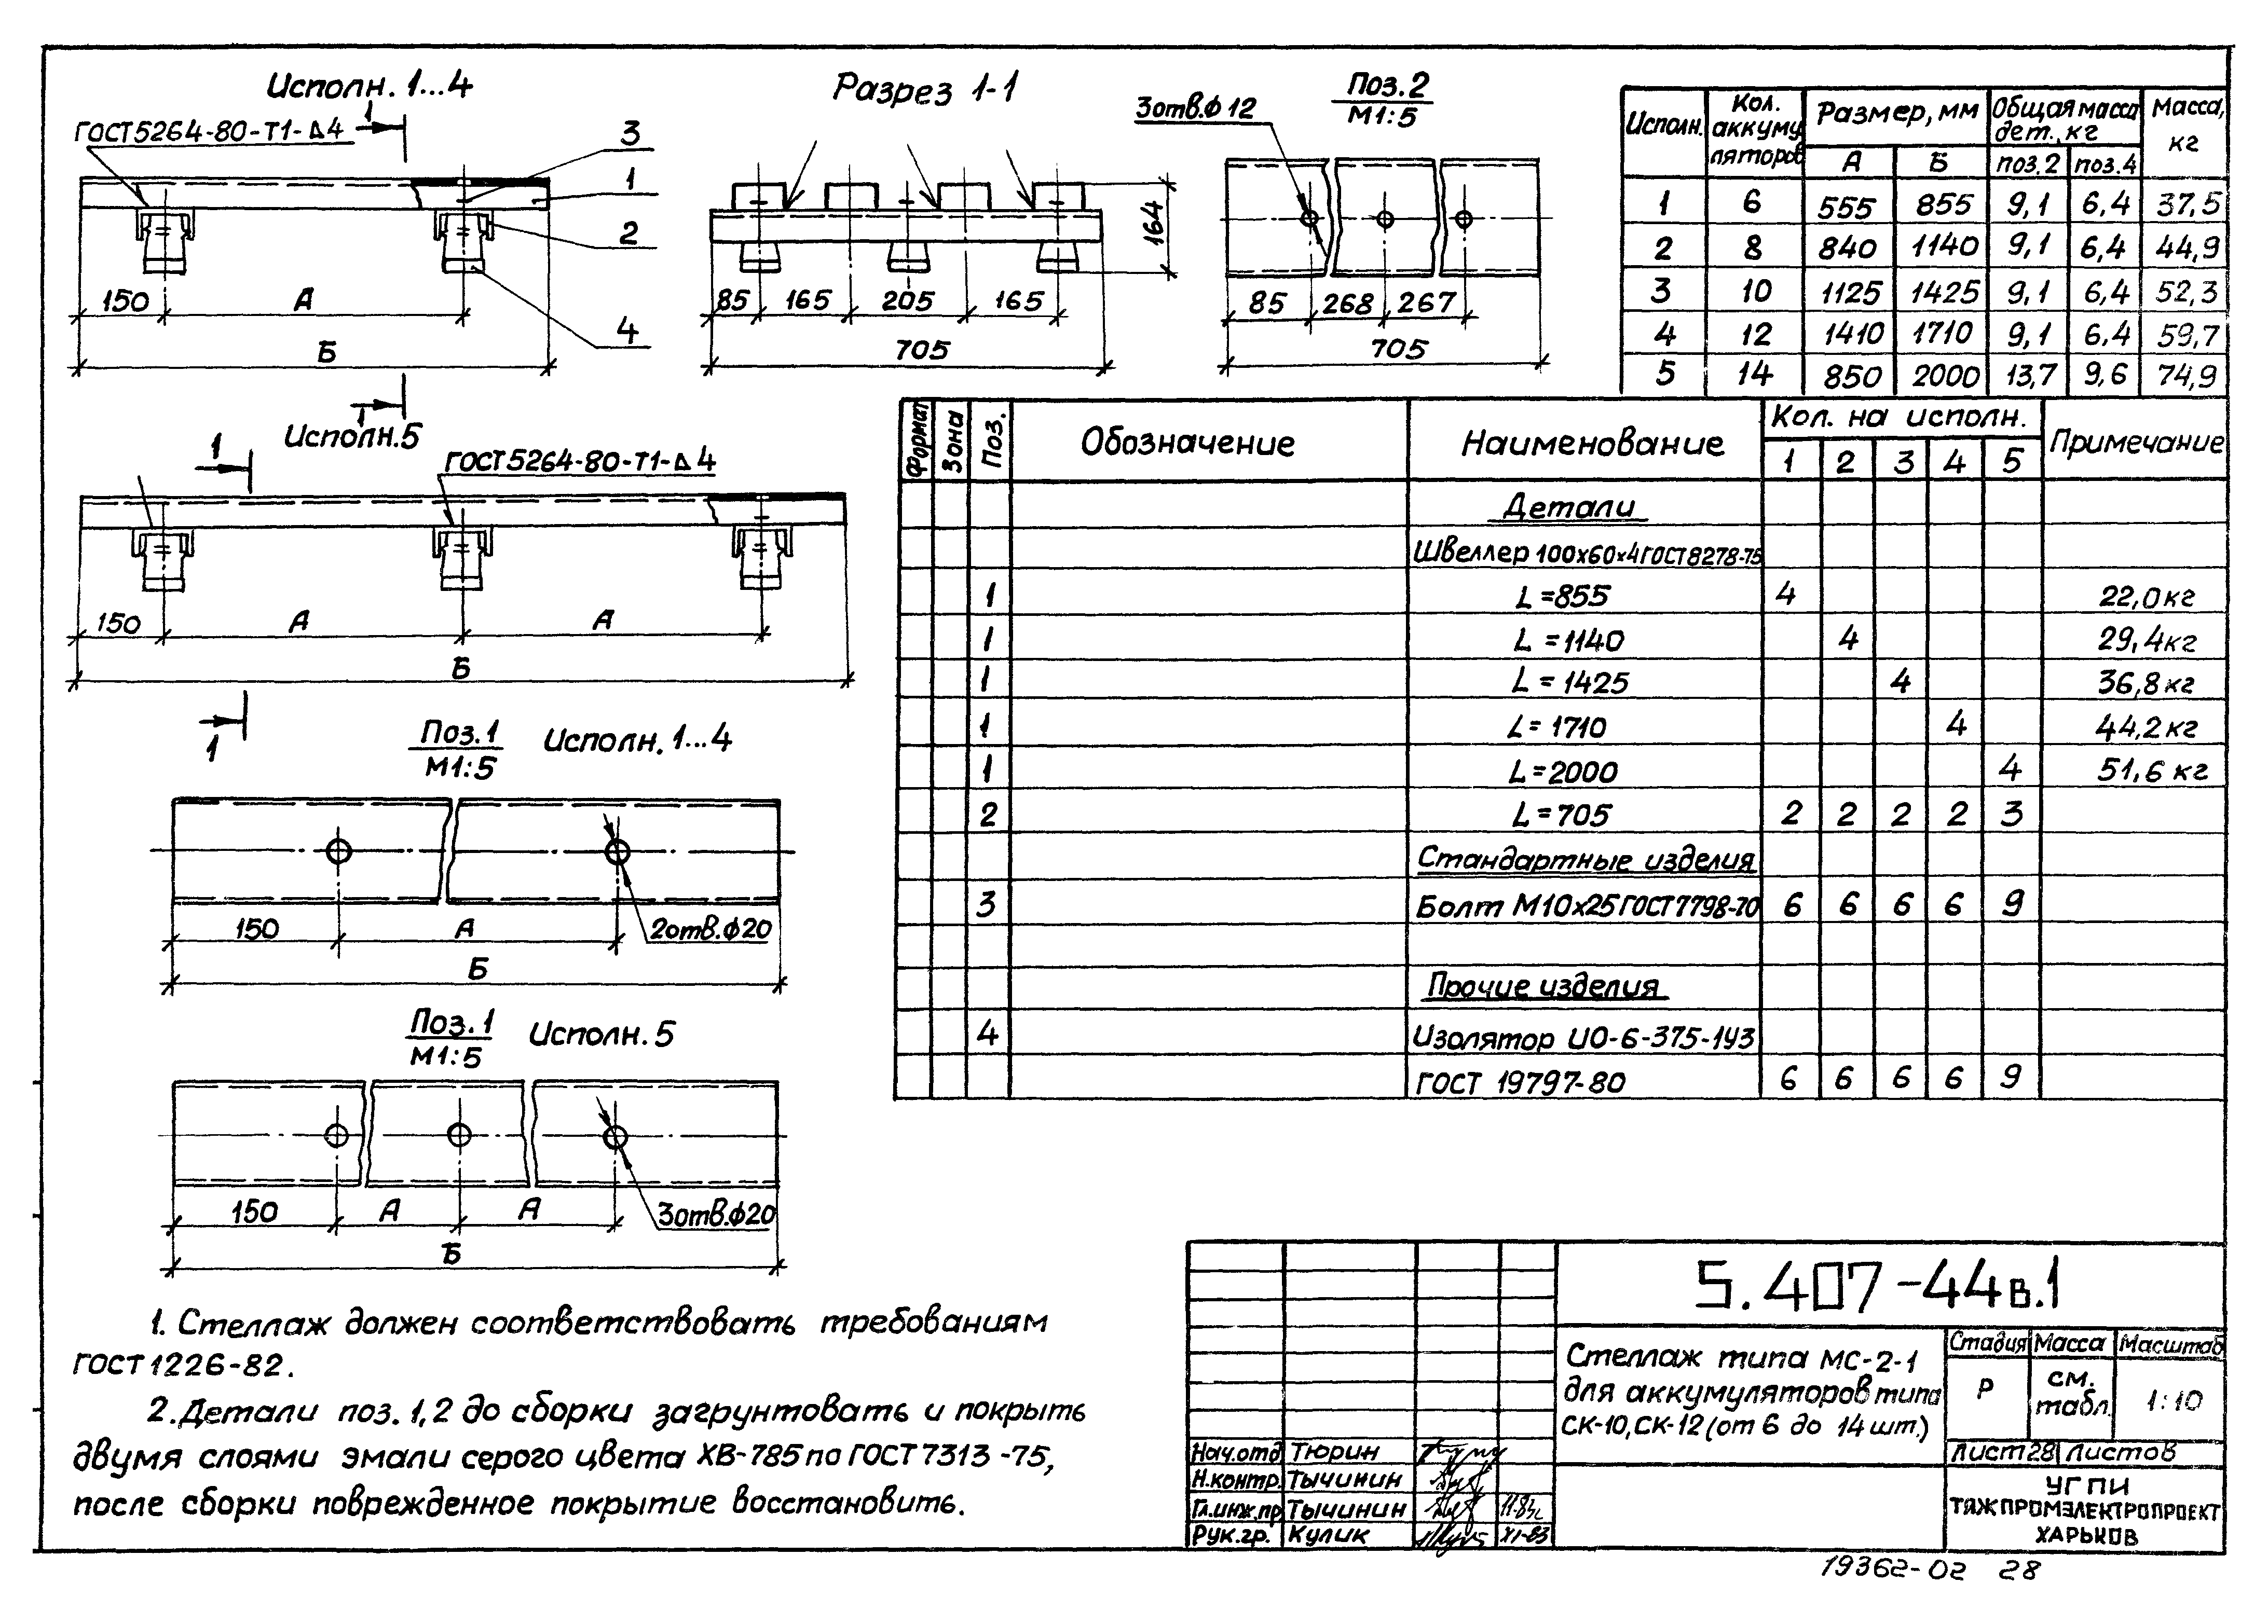 Исполн. 1...4
ГОСТ 5264-80-Т1-Δ4
1
3
1
2
4
150 А
Б
1
Разрез 1-1
164
85 165 205 165
705
Поз.2
М1:5
3отв.ф12
85 268 267
705
Исполн. Кол. аккумуляторов Размер, мм Общая масса дет., кг Масса, кг
А Б поз.2 поз.4
1 6 555 855 9,1 6,4 37,5
2 8 840 1140 9,1 6,4 44,9
3 10 1125 1425 9,1 6,4 52,3
4 12 1410 1710 9,1 6,4 59,7
5 14 850 2000 13,7 9,6 74,9
Исполн.5
1
ГОСТ 5264-80-Т1-Δ4
150 А А
Б
1
Поз.1 Исполн. 1...4
М1:5
150 А 2отв.ф20
Б
Поз.1 Исполн. 5
М1:5
150 А А 3отв.ф20
Б
Формат Зона Поз. Обозначение Наименование Кол. на исполн. Примечание
1 2 3 4 5
Детали
Швеллер 100х60х4 ГОСТ 8278-75
1 L=855 4 22,0кг
1 L=1140 4 29,4кг
1 L=1425 4 36,8кг
1 L=1710 4 44,2кг
1 L=2000 4 51,6 кг
2 L=705 2 2 2 2 3
Стандартные изделия
3 Болт М10х25 ГОСТ 7798-70 6 6 6 6 9
Прочие изделия
4 Изолятор ИО-6-375-1У3
ГОСТ 19797-80 6 6 6 6 9
1. Стеллаж должен соответствовать требованиям
ГОСТ 1226-82.
2. Детали поз. 1,2 до сборки загрунтовать и покрыть
двумя слоями эмали серого цвета ХВ-785 по ГОСТ 7313-75,
после сборки поврежденное покрытие восстановить.
5.407-44в.1
Стеллаж типа МС-2-1
для аккумуляторов типа
СК-10, СК-12 (от 6 до 14 шт.)
Стадия Масса Масштаб
Р см. табл. 1:10
Лист 28 Листов
Нач.отд Тюрин
Н.контр. Тычинин
Гл.инж.пр Тычинин
Рук.гр. Кулик XI-83
УГПИ
ТЯЖПРОМЭЛЕКТРОПРОЕКТ
ХАРЬКОВ
19362-02 28